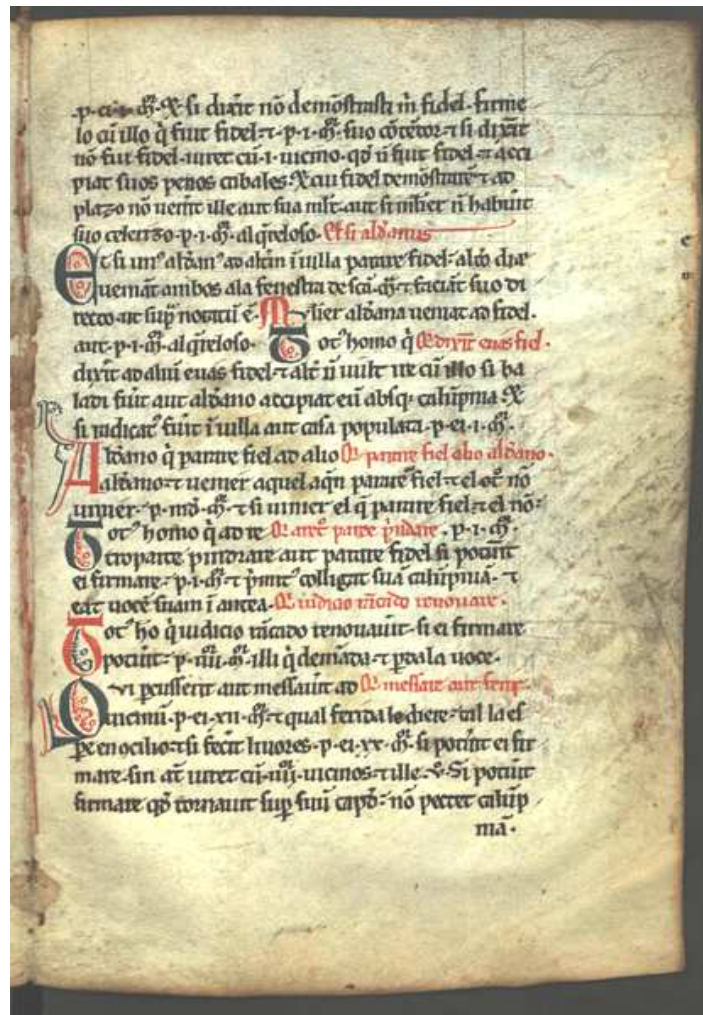 .p. ei .i. mr̃. Et si dixerit nõ demõstrasti m̃ fidel. firme
lo cũ illo q̃ fuit fidel. ⁊ .p. .i. mr̃. suo cõtẽtor. ⁊ si dixerit
nõ fui fidel. iuret cũ .i. uicino. qđ ñ fuit fidel. ⁊ acci
piat suos penos cabales. Et cui fidel demõstrare ⁊ ad
plazo nõ uenit ille aut sua mlr̃. aut si mlier ñ habuit
suo celerizo .p. .i. mr̃. al q̃reloso. Et si aldanus
Et si un᷒ aldan᷒ ad altm̃ ĩ uilla parare fidel: alio die
ueniãt ambos ala fenestra de sca᷉ m᷉. ⁊ faciãt suo di
recto aut sup̃ notatũ ẽ. Mulier aldana ueniat ad fidel.
aut .p. .i. mr̃. al q̃reloso. Tot᷒ homo q̃ Qr̃ dixit euas fiel.
dixit ad aliũ euas fidel. ⁊ alt᷒ ñ uult ire cũ illo si ha
ladi fuit aut aldano accipiat eũ absq; calũpnia. Et
si iudicat᷒ fuit ĩ uilla aut casa populata .p. ei .i. mr̃.
Aldano q̃ parare fiel ad alio Qr̃ parare fiel alio aldano.
aldano. ⁊ uenier aquel aqñ parare fiel. ⁊ el ot᷒ nõ
uinier .p. md᷉. mr̃. ⁊ si uinier el q̃ parare fiel. ⁊ el nõ:
Tot᷒ homo q̃ ad re Qr̃ aret᷒ parte pĩdrare. .p. .i. mr̃.
tro parte pindrare aut parare fidel si potuit
ei firmare .p. .i. mr̃. ⁊ p̃mit᷒ colligat suã calũpniã. ⁊
eat uocẽ suam ĩ antea. Qr̃ iudicio rãcido renouare.
Tot᷒ ho q̃ iudicio rãcido renouauit. si ei firmare
potuit: .p. .iiii. mr̃. illi q̃ demãda. ⁊ p̃dala uoce.
Qui pcusserit aut messauit ad Qr̃ messare aut ferir.
uicinũ .p. ei .xii. mr̃. ⁊ qual ferida lo diere. tal la es
pe en ocilio. ⁊ si fecit liuores .p. ei .xx. mr̃. si potuit ei fir
mare. sin at̃ iuret cũ .iiii. uicinos. ⁊ ille .v. Si potuit
firmare qđ tornauit sup̃ suũ capđ: nõ pectet calũp
niã.